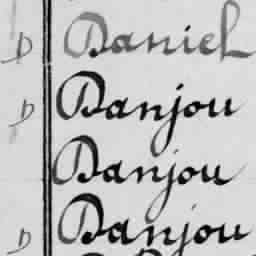 D Daniel
D Danjou
Danjou
D Danjou